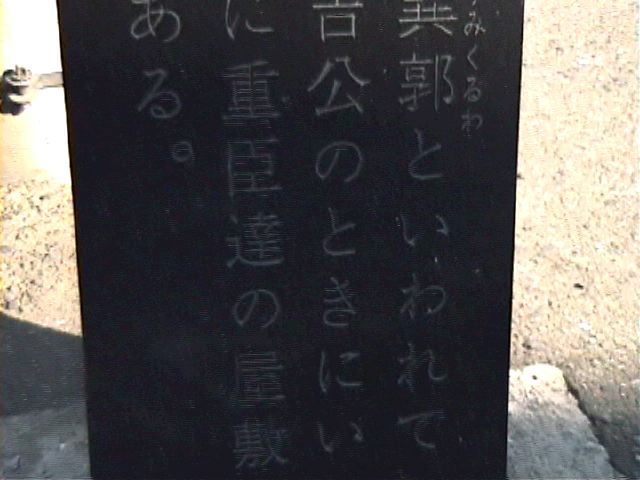 みくるわ
巽郭といわれて
吉公のときにい
に重臣達の屋敷
ある。